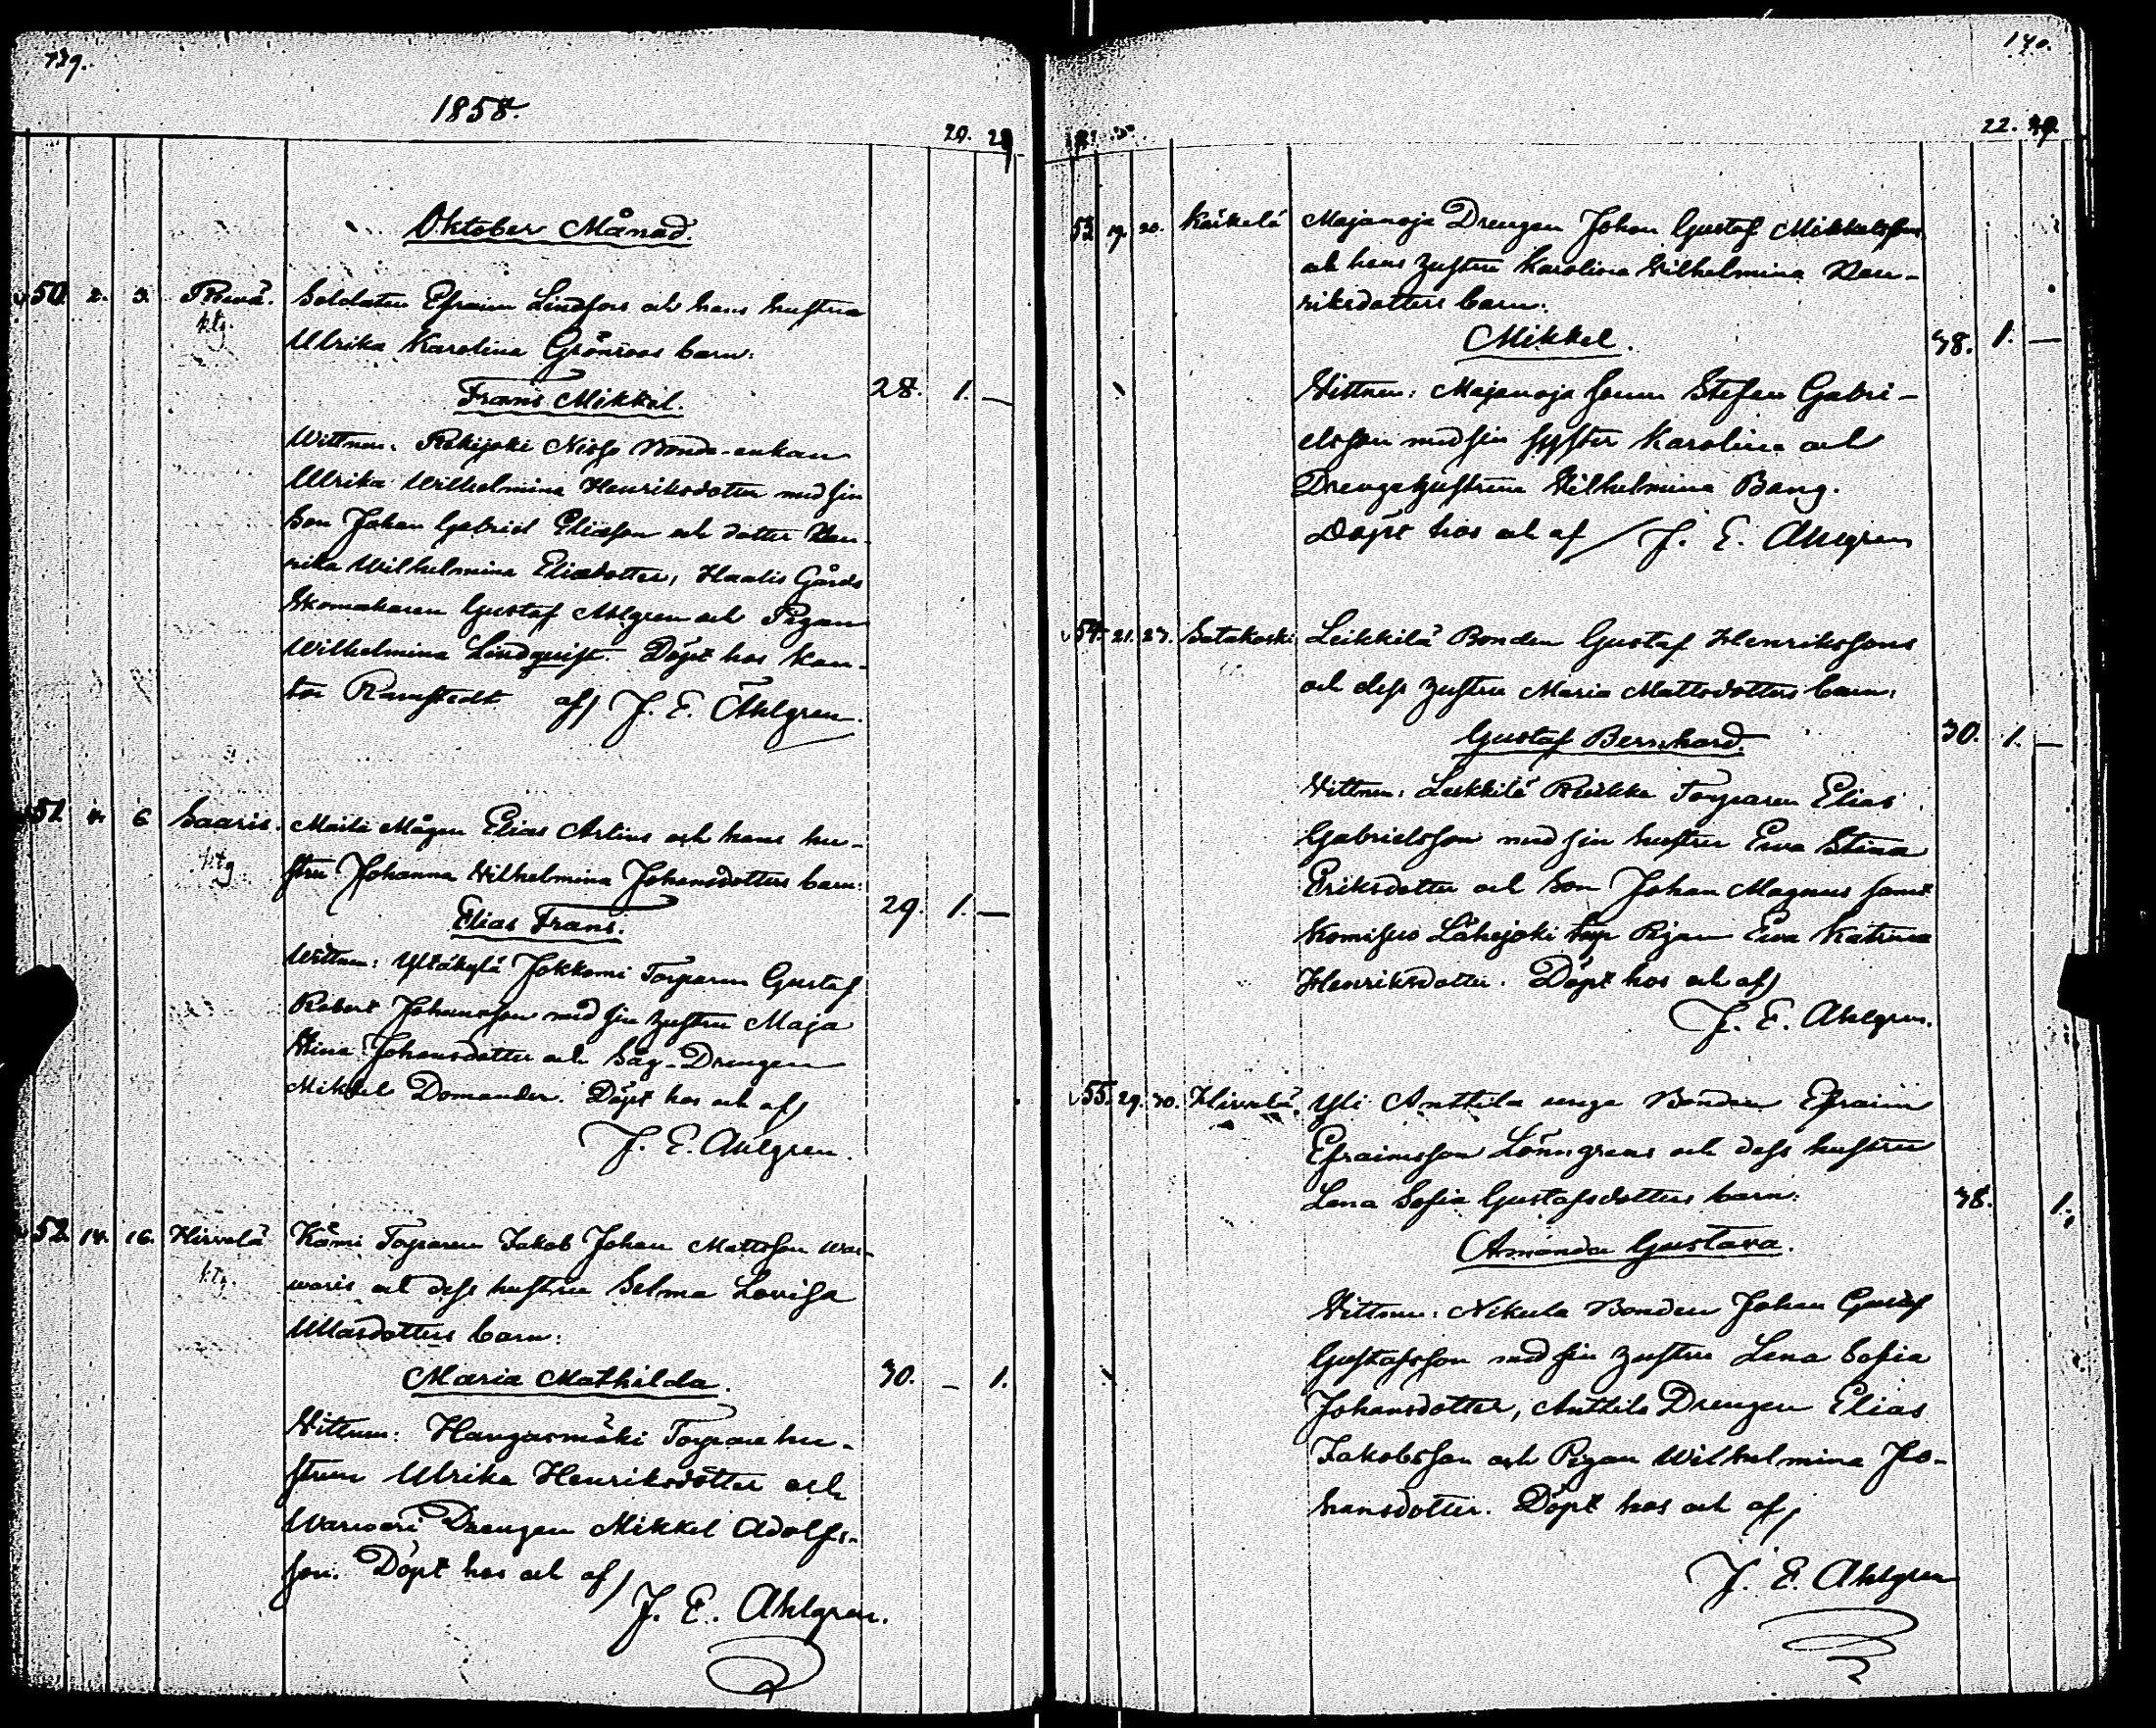 139.
1858.
29. 28
Oktober Månad.
50. 2. 3. Prevä. Soldaten Efraim Lindfors och hans hustru
ktg. Ulrika Karolina Grönroos barn:
Frans Mikkel. 28. 1. —
Wittnen: Rekijoki Nisse Bonde-enkan
Ulrika Wilhelmina Henriksdotter med sin
Son Johan Gabriel Eliasson och dotter Hen-
rika Wilhelmina Eliasdotter, Haalis Gårds
Skomakaren Gustaf Ahlgren och Pigan
Wilhelmina Lindquist. Döpt hos Kan-
tor Ramstedt af J. E. Ahlgren.
51. 4. 6. Saaris. Maila Mågen Elias Artins och hans hu-
ktg stru Johanna Wilhelmina Johansdotters barn:
Elias Frans. 29. 1. —
Wittnen: Yltäkylä Jokkomi Torparen Gustaf
Robert Johansson med sin hustru Maja
Stina Johansdotter och Såg-Drengen
Mikkel Domander. Döpt hos och af
J. E. Ahlgren.
52. 14. 16. Hirvelä Kåmi Torparen Jakob Johan Mattsson War-
ktg. waris och dess hustru Selma Lovisa
Ullasdotters barn:
Maria Mathilda. 30. — 1.
Wittnen: Hangasmäki Torpare hu-
strun Ulrika Henriksdotter och
Warwari Drengen Mikkel Adolfs-
son. Döpt hos och af
J. E. Ahlgren.
140.
22. 29.
53. 19. 20. Käikelä Majanoja Drengen Johan Gustaf Mikkelssons
och hans hustru Karolina Wilhelmina Hen-
riksdotters barn:
Mikkel. 38. 1. —
Wittnen: Majanoja Sonen Stefan Gabri-
elsson med sin syster Karolina och
Drengehustrun Wilhelmina Bang.
Döpt hos och af J. E. Ahlgren
54. 21. 23. Satakoski Leikkilä Bonden Gustaf Henrikssons
och dess hustru Maria Mattsdotters barn:
Gustaf Bernhard. 30. 1. —
Wittnen: Leikkilä Torparen Elias
Gabrielsson med sin hustru Ewa Stina
Eriksdotter och Son Johan Magnus samt
Komisuo Lähejoki Pigan Ewa Katrina
Henriksdotter. Döpt hos och af
J. E. Ahlgren.
55. 29. 30. Hirvelä. Yli Anttila unga Bonden Efraim
Efraimsson Lönngrens och dess hustru
Lena Sofia Gustafsdotters barn: 38. 1.
Amanda Gustava.
Wittnen: Nikula Bonden Johan Gustaf
Gustafsson med sin hustru Lena Sofia
Johansdotter, Anttila Drengen Elias
Jakobsson och Pigan Wilhelmina Jo-
hansdotter. Döpt hos och af
J. E. Ahlgren